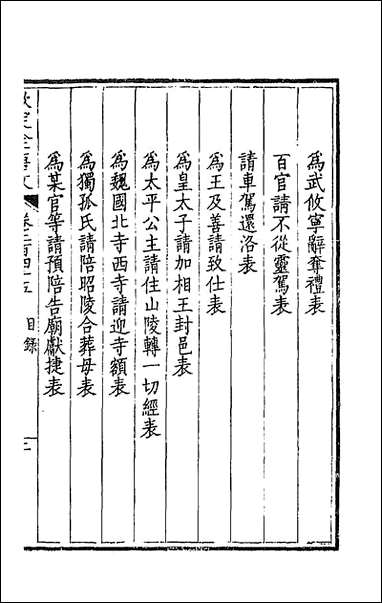 為武攸寧辭奪禮表
百官請不從靈駕表
請車駕還洛表
為王及善請致仕表
為皇太子請加相王封邑表
為太平公主請住山陵轉一切經表
為魏國北寺西寺請迎寺額表
為獨孤氏請陪昭陵合葬母表
為某官等請預陪告廟獻捷表
欽定全唐文 卷二百四十五 目錄